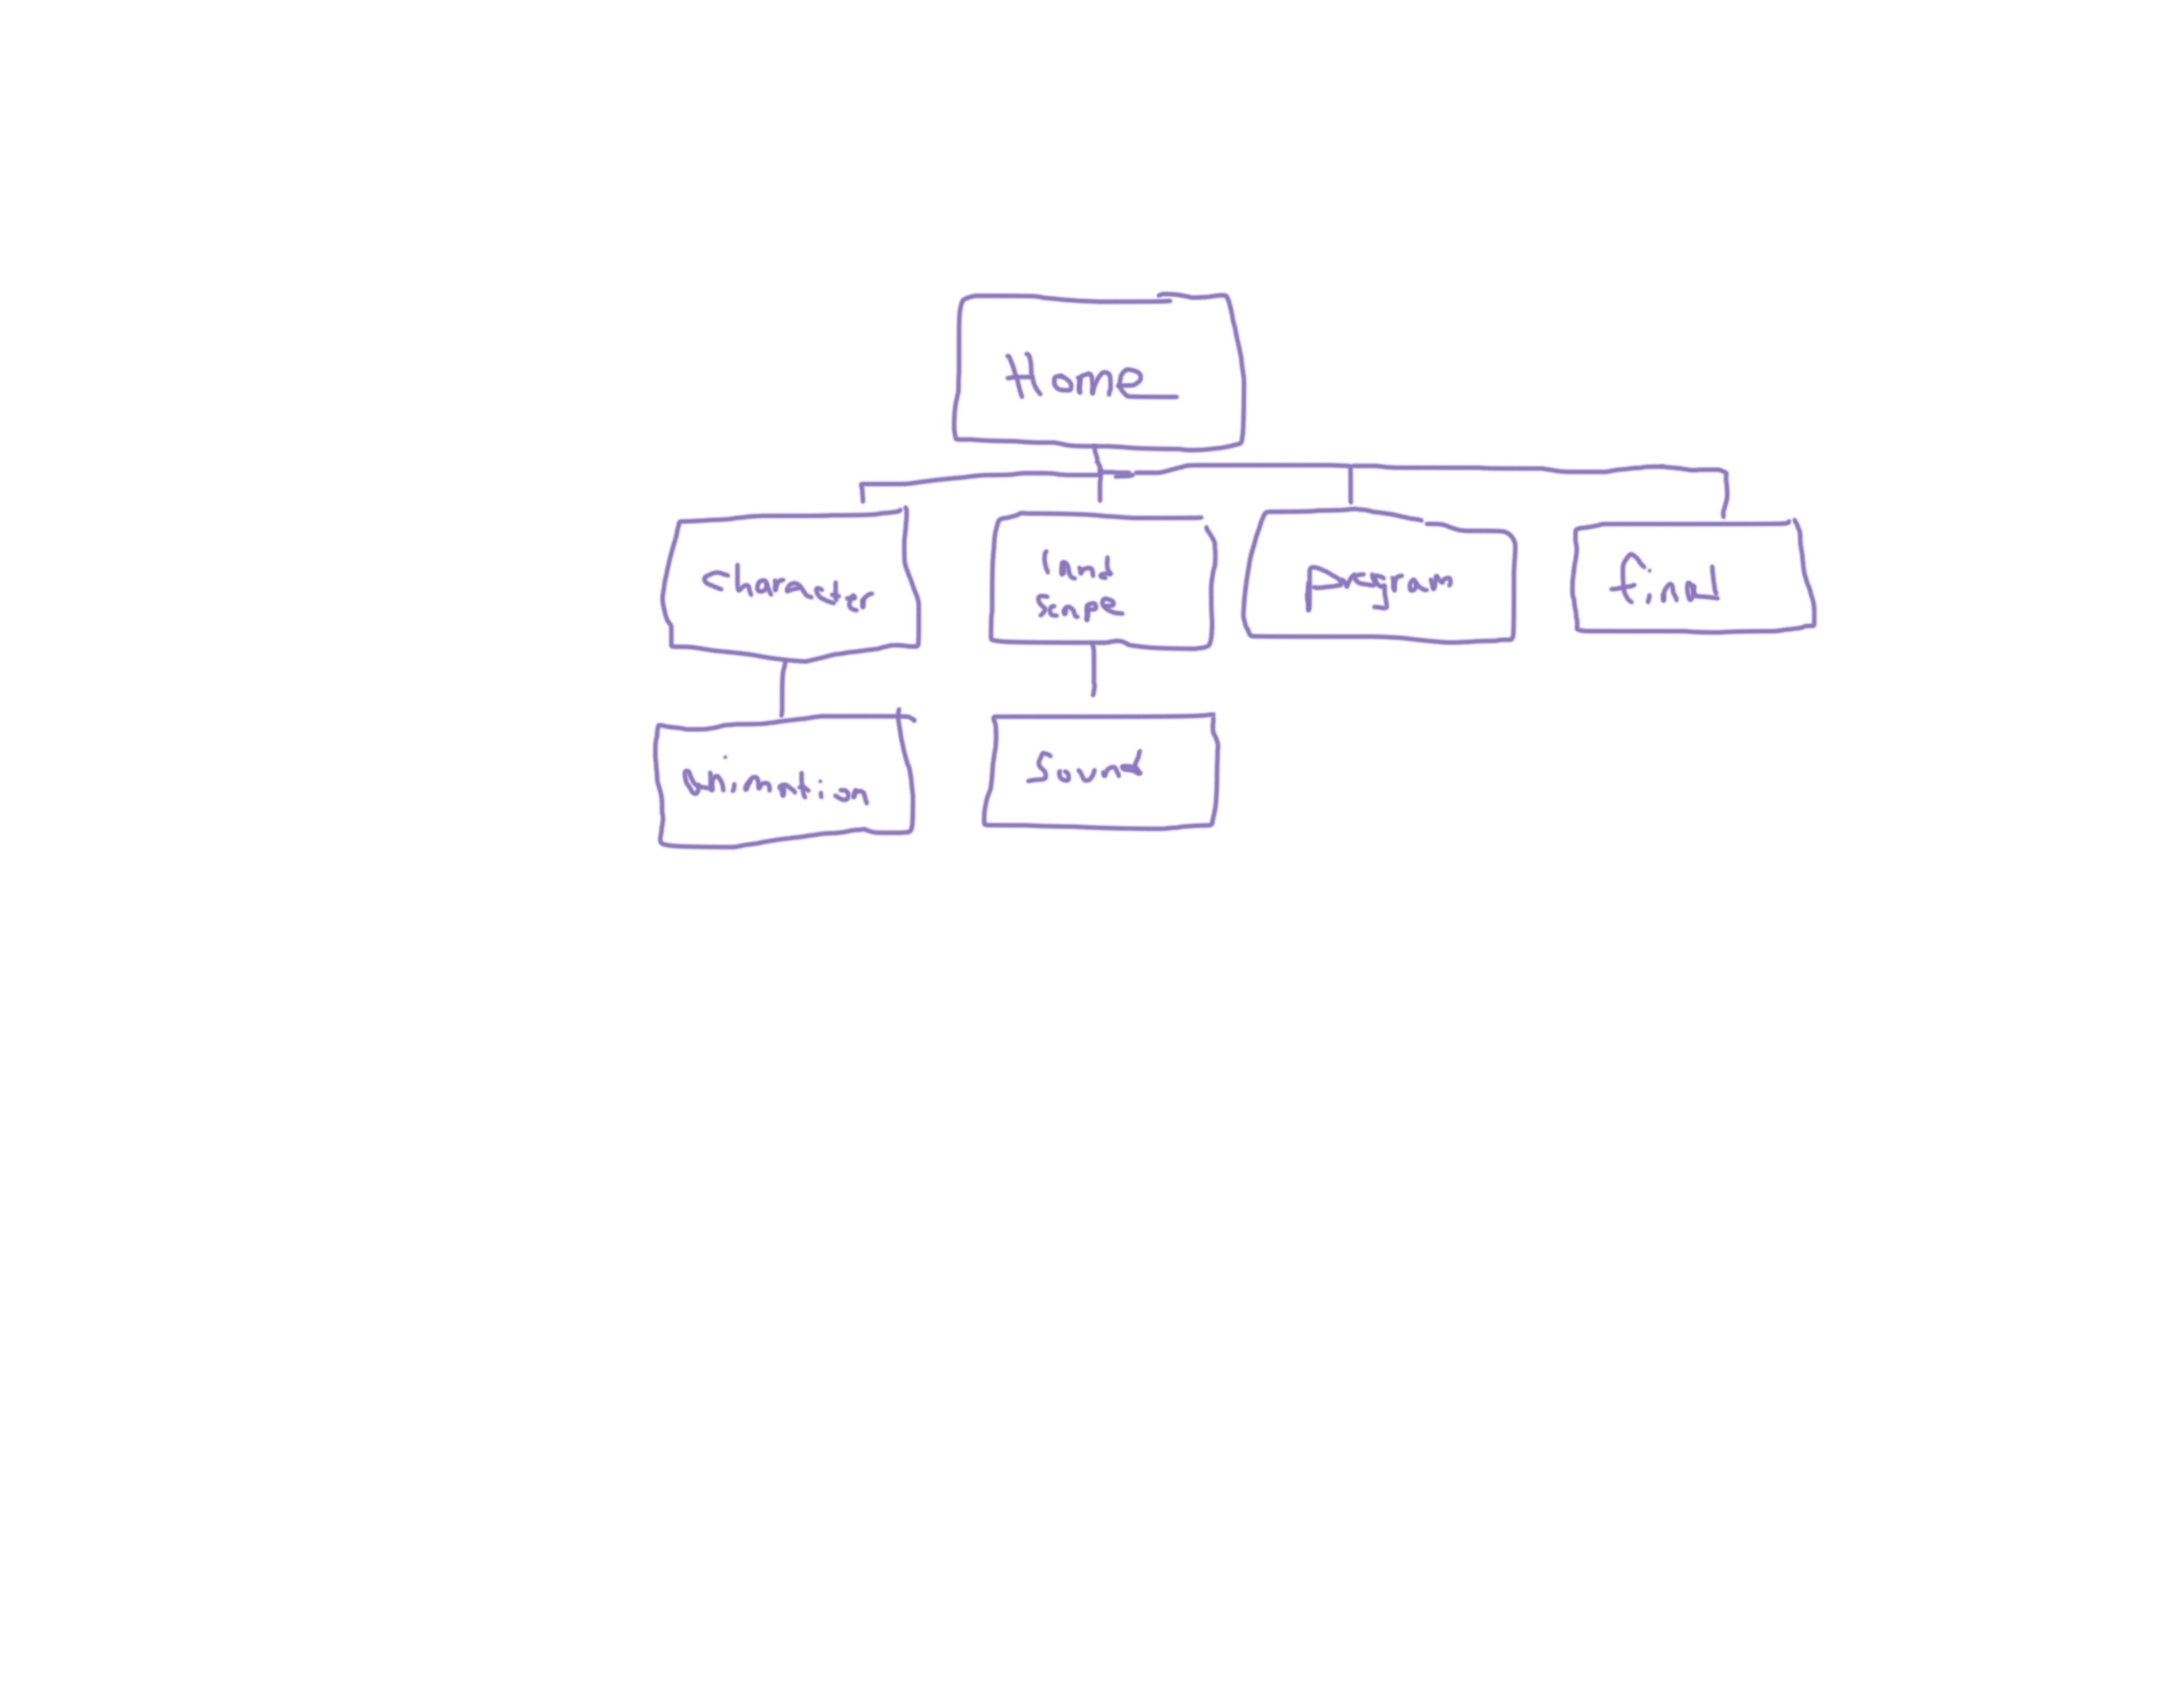 Home
character
land
scape
program
final
animation
sound